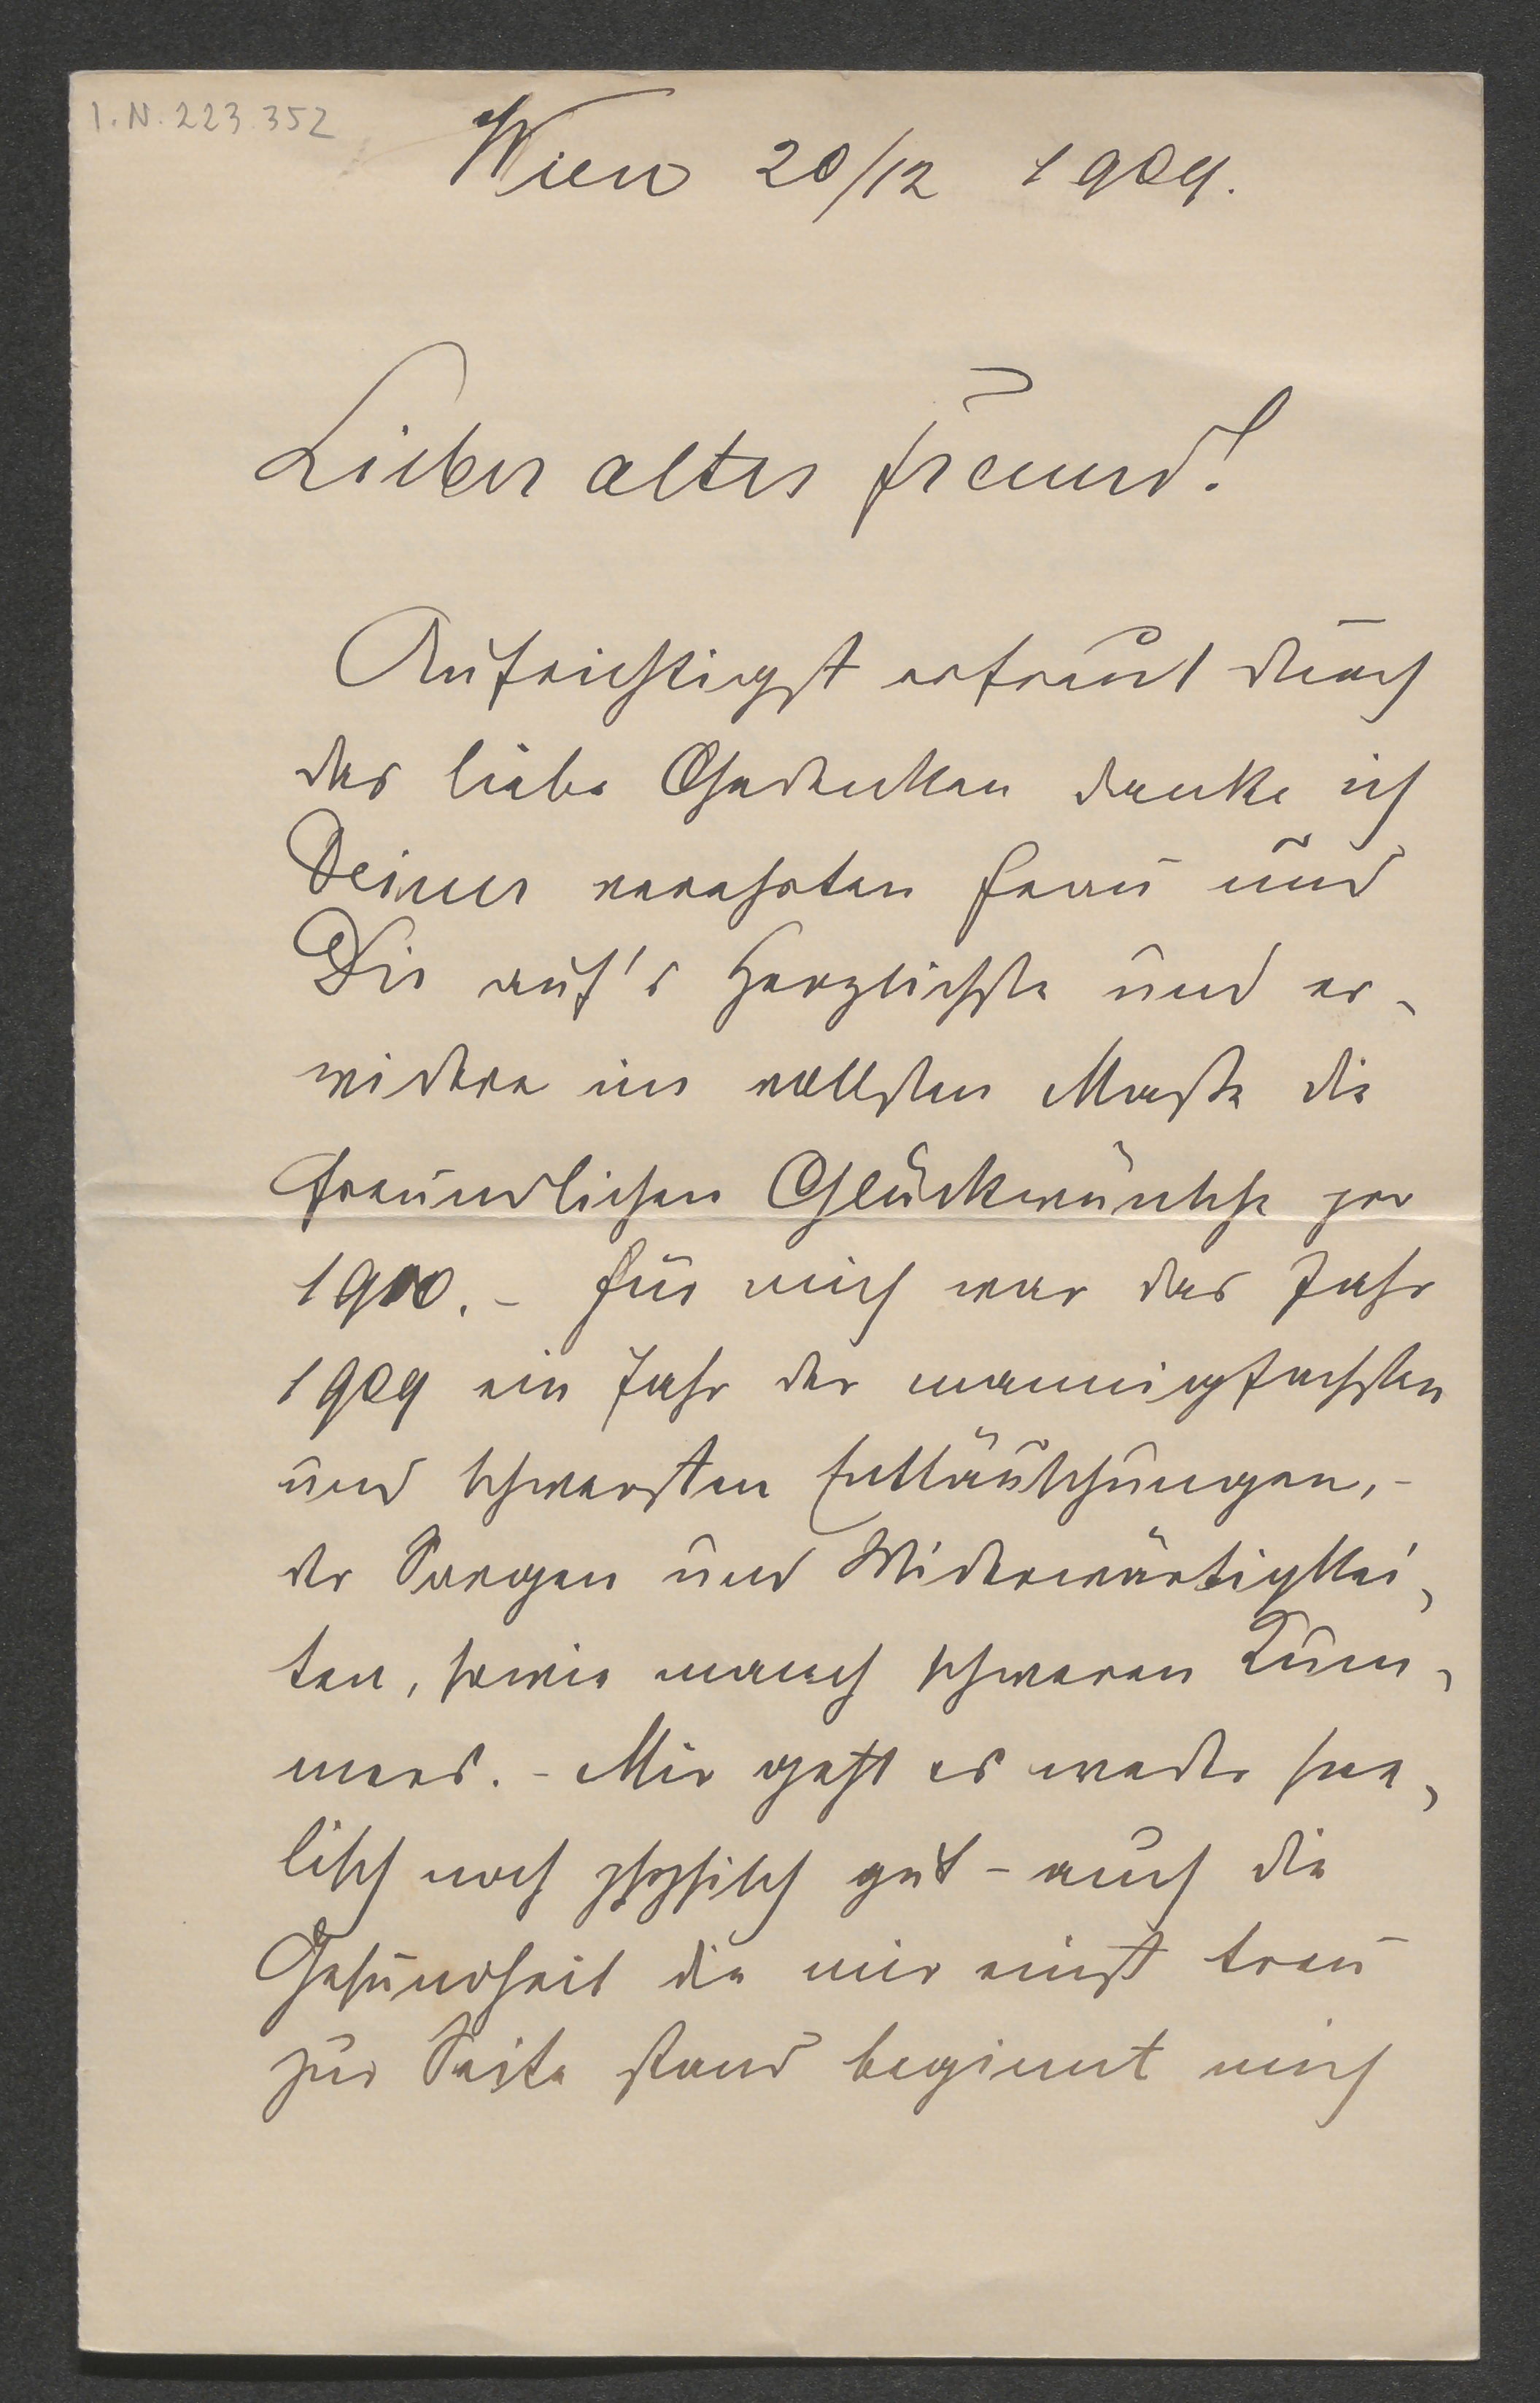 I.N. 223.352
Wien 20/12 1909.
Lieber alter Freund!
Aufrichtigst erfreut durch
das liebe Gedenken danke ich
Deiner verehrten Frau und
Dir auf's Herzlichste und er-
widere im vollsten Maße die
freundlichen Glückwünsche pro
1910. - Für mich war das Jahr
1909 ein Jahr der mannigfachsten
und schwersten Enttäuschungen, -
der Sorgen und Widerwärtigkei-
ten, sowie manch schweren Kum-
mers. - Mir geht es weder see-
lisch noch physisch gut - auch die
Gesundheit die mir einst treu
zur Seite stand beginnt mich